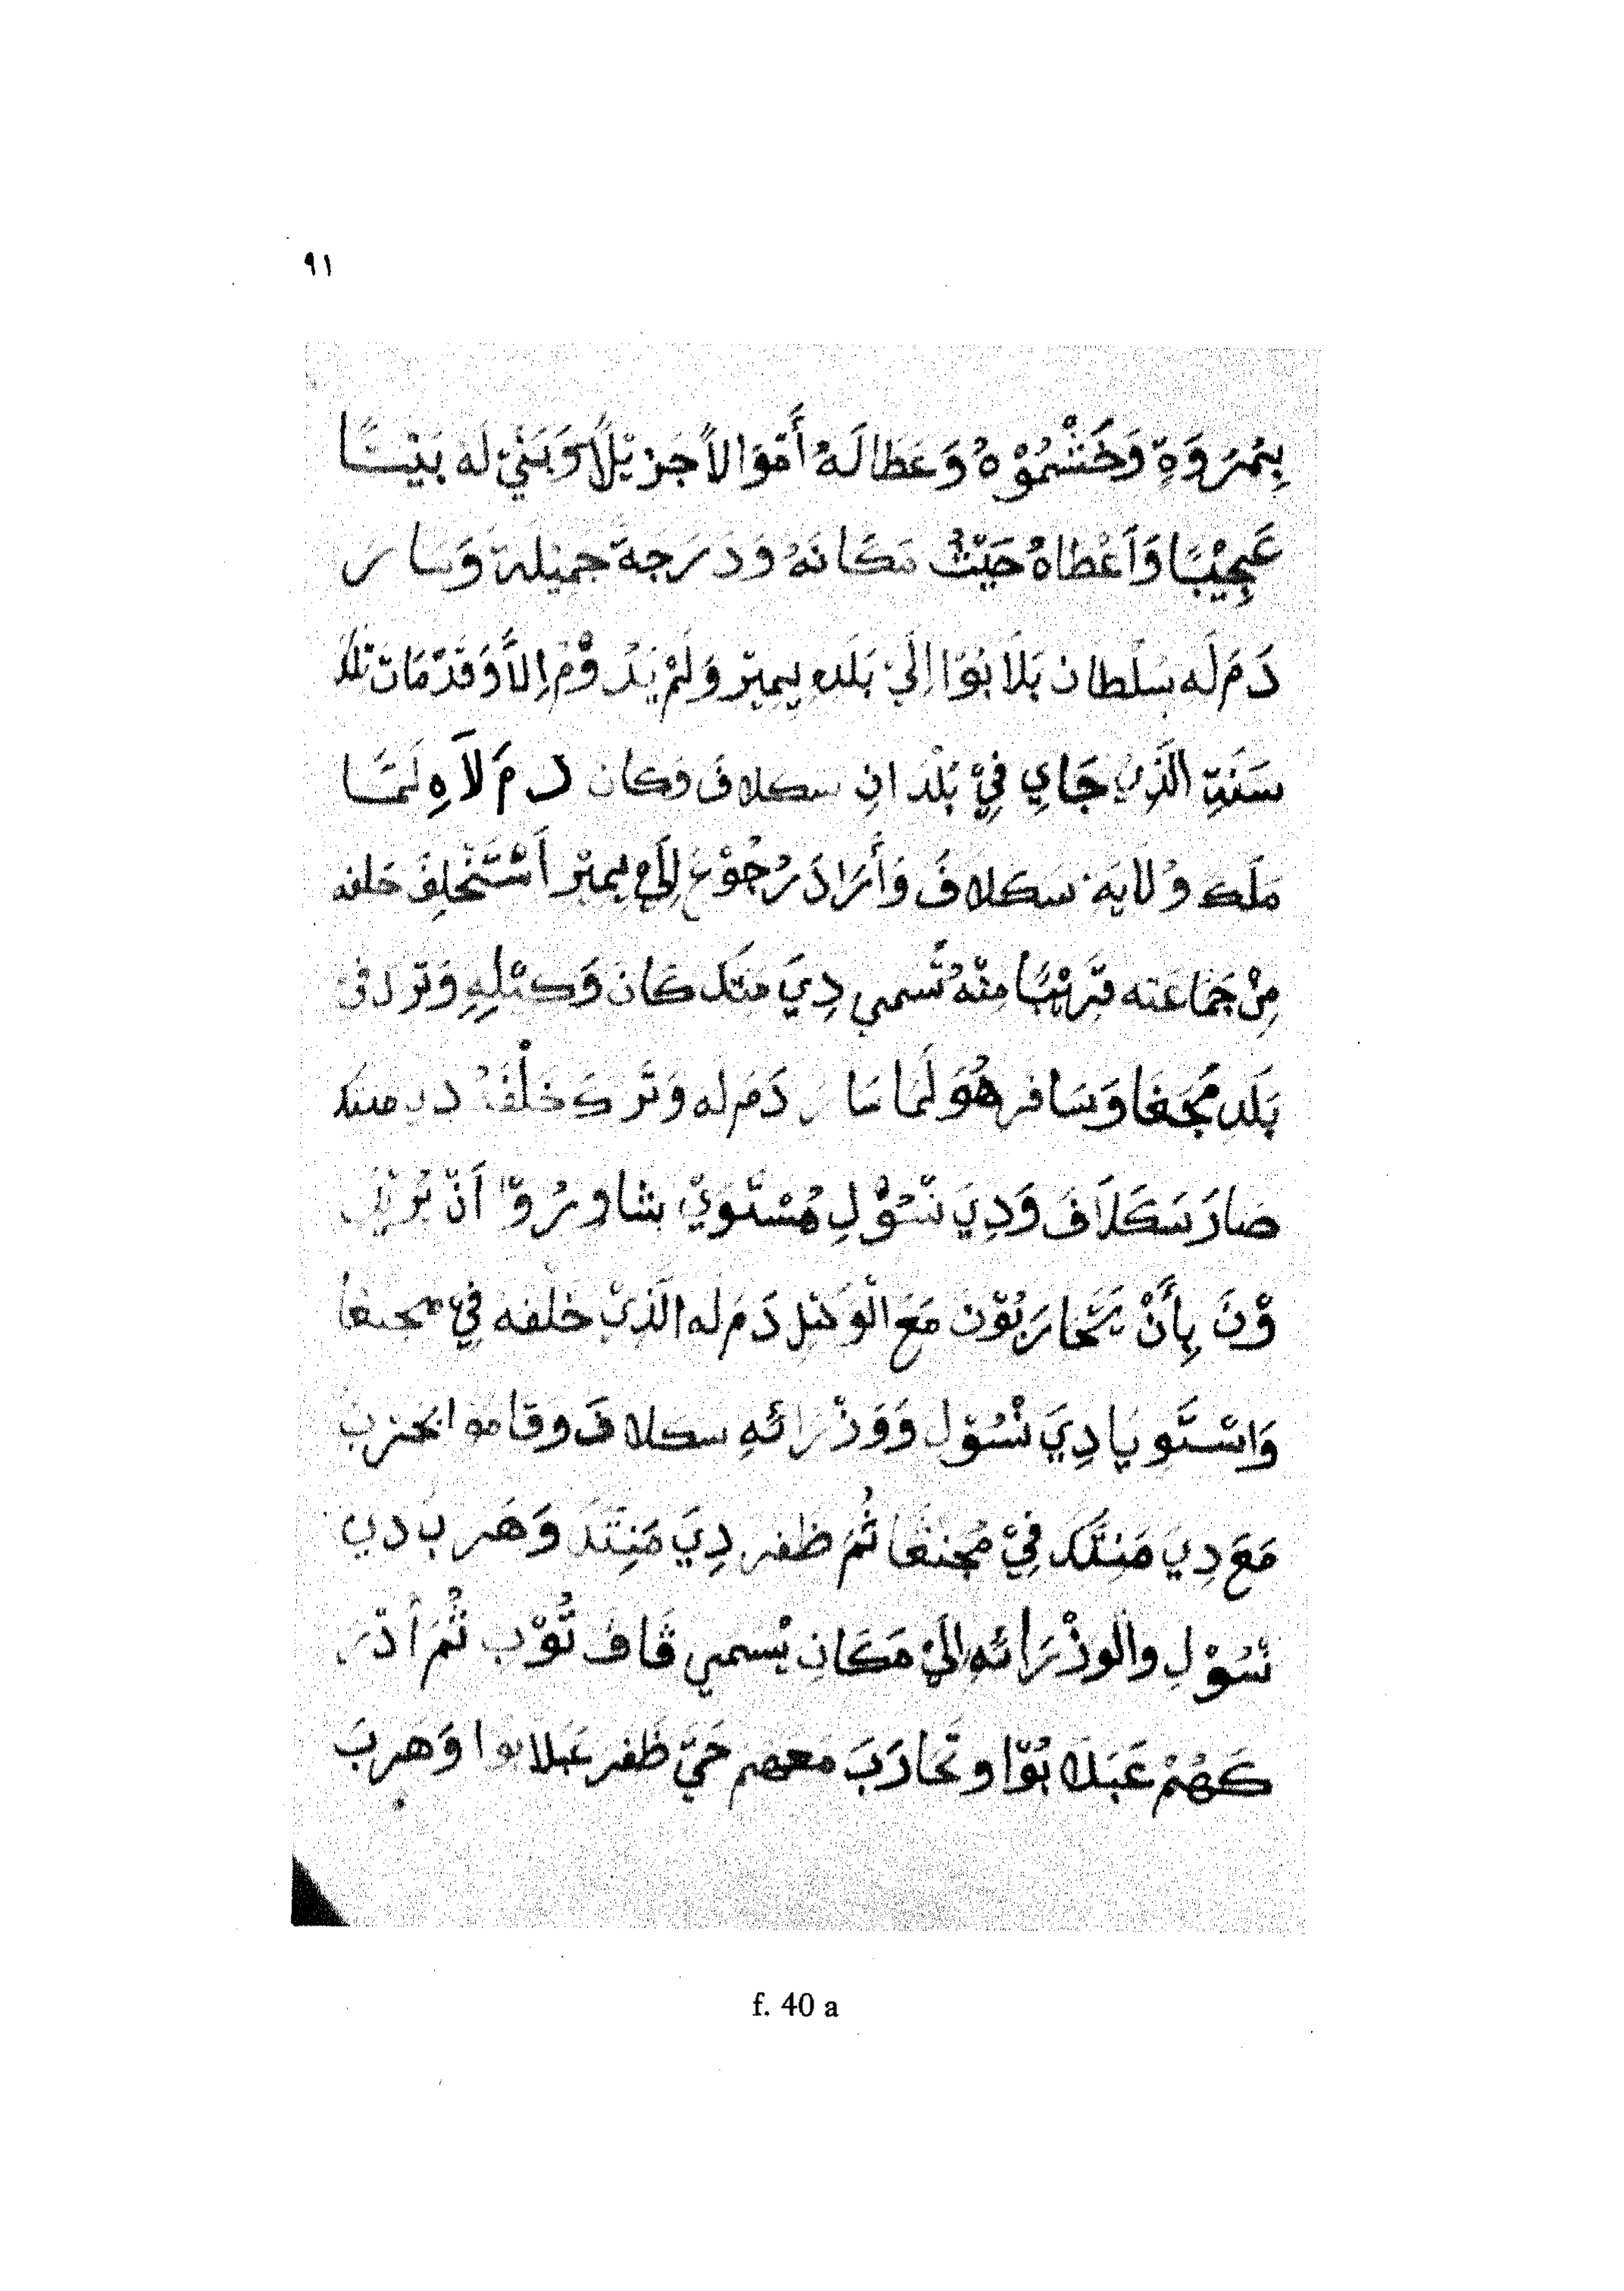 ٩١
بِثَمَرَوَةٍ وَحَشْمُوْهُ وَعَطَالَهُ أَمْوَالاً جَزِيْلاً وَبَنَيْ لَهُ بَيْتًا
عَجِيْبًا وَاَعْطَاهُ حَيْثُ مَكَانَهُ وَدَرَجَةً جَمِيْلَة وَسَارَ
دَمَ لَه سُلْطَان بَلَابُوَا اِلَيْ بَلَدِ يِمِيْرِ وَلَمْ يَدُوْمُ اِلاَّ وَقَدْ مَاتَ تلك
سَنَةِ الَّذِيْ جَايِ فِيْ بَلْدَانِ سكلاف وَكان دَمَ لَاهِ لَمَّا
مَلَكَ وُلَايَة سَكلافَ وَأَرَادَ رُجُوْعَ اِلَيْ يِمِيْرِ اَسْتَخْلِفَ خلفه
مِنْ جَمَاعَته قَرِيْبًا مِنْهُ تُسمي دِيَ مَنَتَك كَانَ وَكِيْلِهِ وَترك في
بَلَدِ مُجَنْغَا وَسَافر هُوَ لَمَا سَارَ دَمَ له وَتَرَكَ خَلْفَهُ دي منتك
صَارَ سَكَلاَفَ وَدِيَ نْسُوْلِ مُسْتَوِيْ شاوِرُوْا اَنْ يُرِيْدُ
وْنَ بِأَنْ يَتَحَارَبُوْنَ مَعَ الْوَكِيْل دَمَ له الَّذِيْ خَلْفه فِيْ مجنغا
وَاسْتَويا دِيَ نْسُوْلِ وَوَزْرَائهِ سكلافَ وقاموا بحرب
مَعَ دِيَ مَنِتَك فِيْ مُجَنْغَا ثُمَ ظفر دِيَ مَنِتَكَ وَهَرب دي
نْسُوْلِ والوزْرَائهِ اِلَيْ مَكَانِ يْسمي ڤَافَ تُوْب ثُمَ أَدْرَ
كَهُمْ عَبَلَابُوْا وتَحَارَبَ معهم حَتّيْ ظَفر عَبَلَابوا وَهَرِبَ
f. 40 a